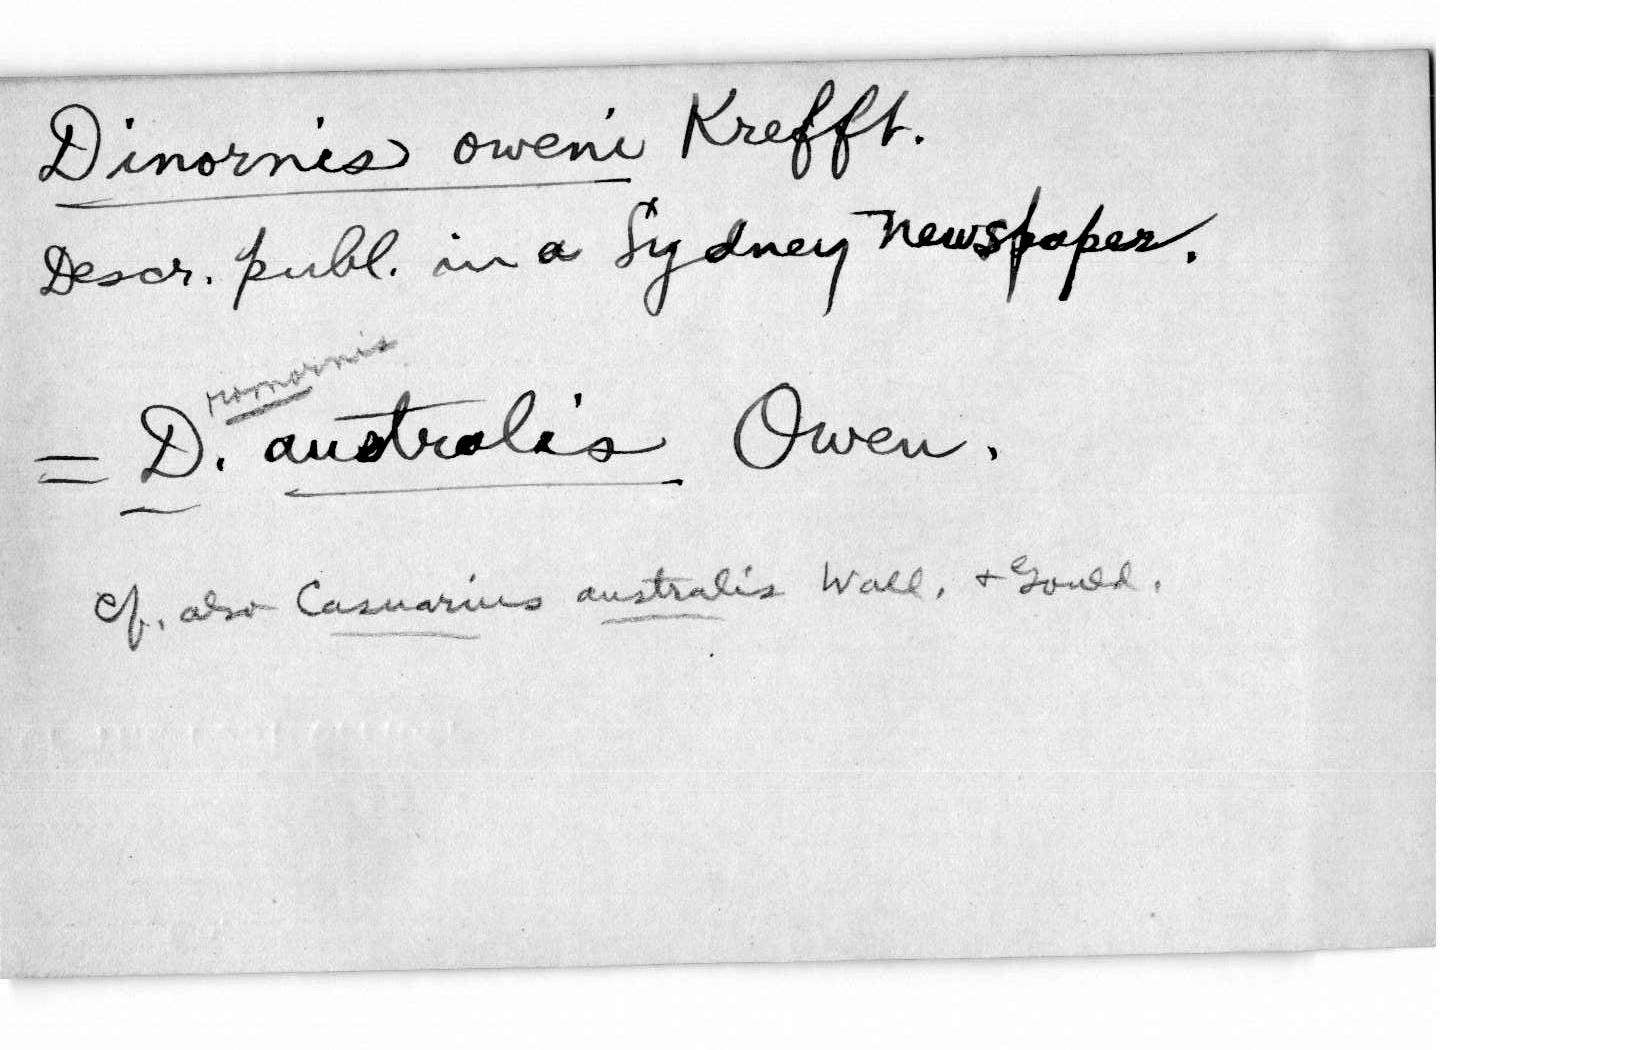 Dinornis oweni Krefft.
Descr. publ. in a Sydney newspaper.
romornis
= D. australis Owen.
Cf. also Casuarius australis Wall. + Gould.